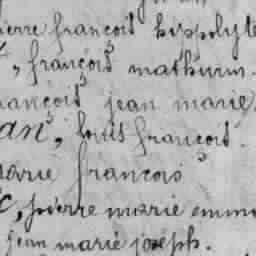 pierre françois hippolyte
, françois mathurin.
françois jean marie
an, louis françois.
marie françois
c, pierre marie emma
jean marie joseph.